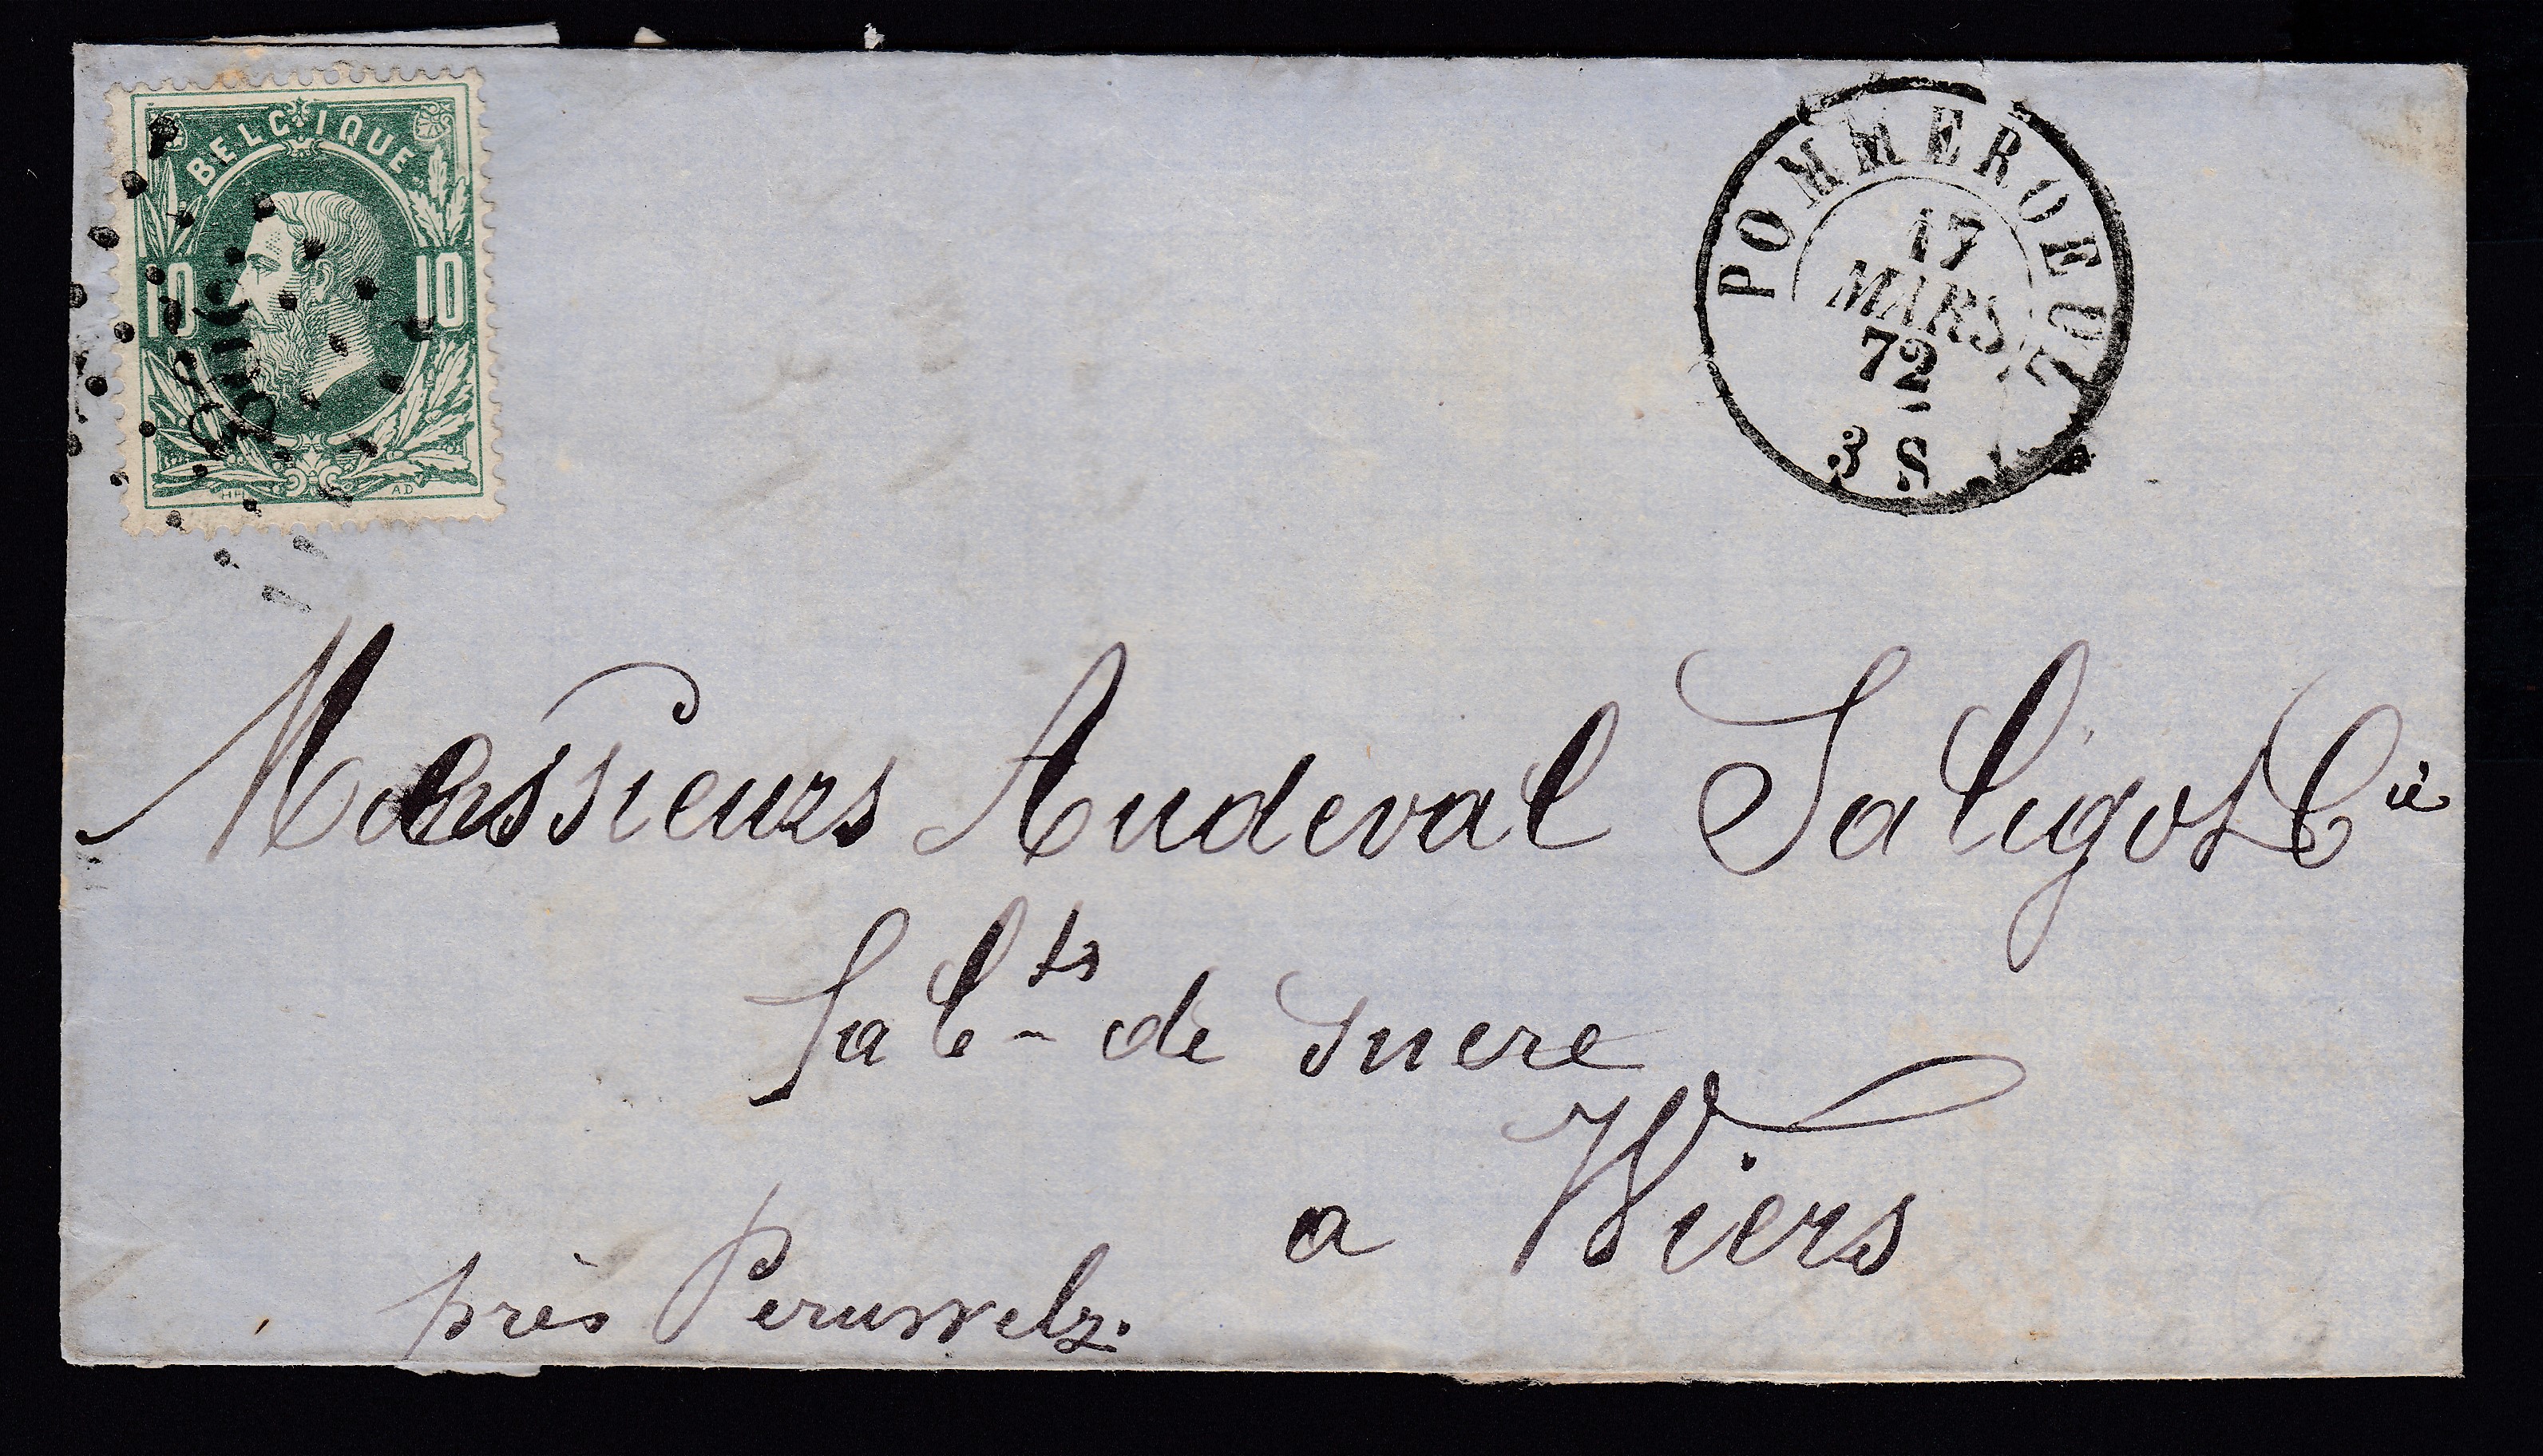 BELGIQUE
10 10
POMMEROEUL
17
MARS
72
3 S
Messieurs Audeval Saligot Cie
fabts de sucre
a Wiers
près Peruwelz.